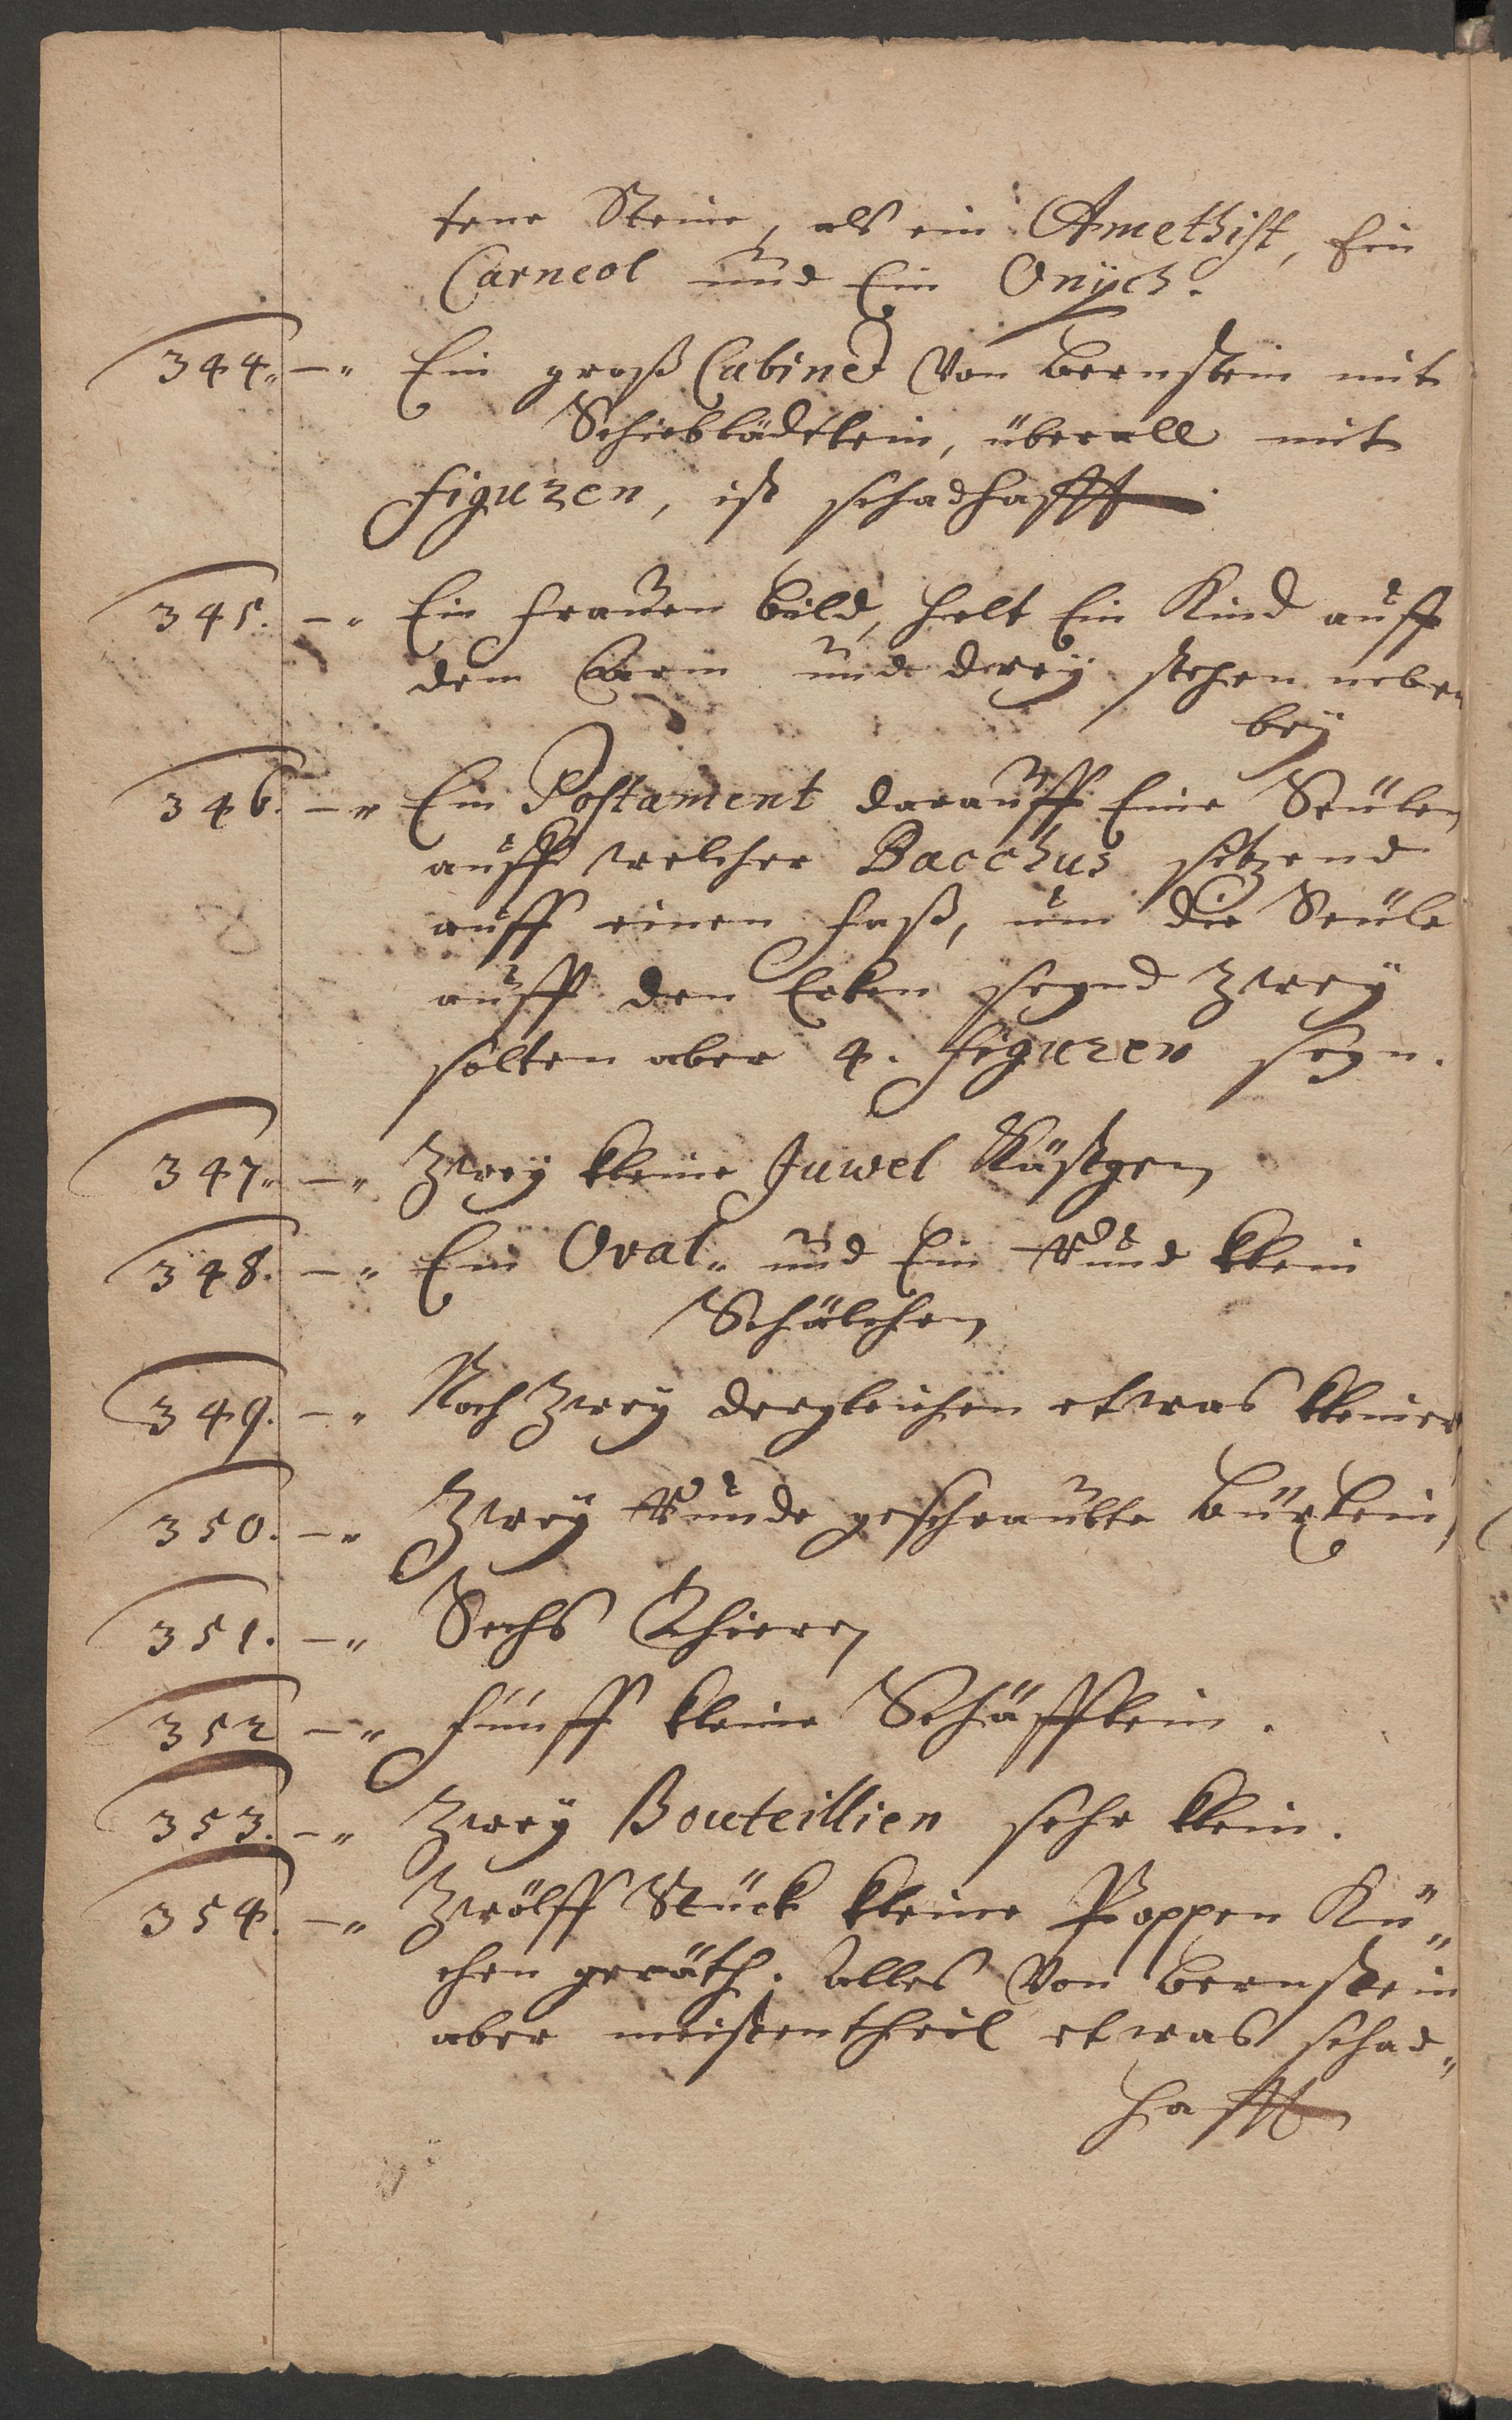 tene Steine, als ein Amethist, Ein
Carneol und Ein Onÿch.
344. -" Ein groß Cabinet Von Bernstein mit
Schiebklädtlein, überall mit
figuren, ist schadhafft.
345. -" Ein frauen Bild, helt Ein Kind auff
dem Arm und dreÿ stehen neben
beÿ
346. -" Ein Postament darauff Eine Seülen
auff welcher Bacchus sitzend
auff einen faß, um die Seüle
auff den Ecken seynd Zweÿ
solten aber 4. figuren seyn.
347. -" Zweÿ kleine Juwel Kästgen
348. -" Ein Oval" und Ein Rund klein
Schälchen
349. -" Noch Zweÿ dergleichen etwas kleiner
350. -" Zweÿ Runde geschraubte Büxlein
351. -" Sechs Thieren
352 -" fünff kleine Schäfflein.
353. -" Zweÿ Bouteillien sehr klein.
354. -" Zwölff Stück kleine Poppen Kü"
chen geräth. Alles Von Bernstein
aber meistentheil etwas schad"
hafft